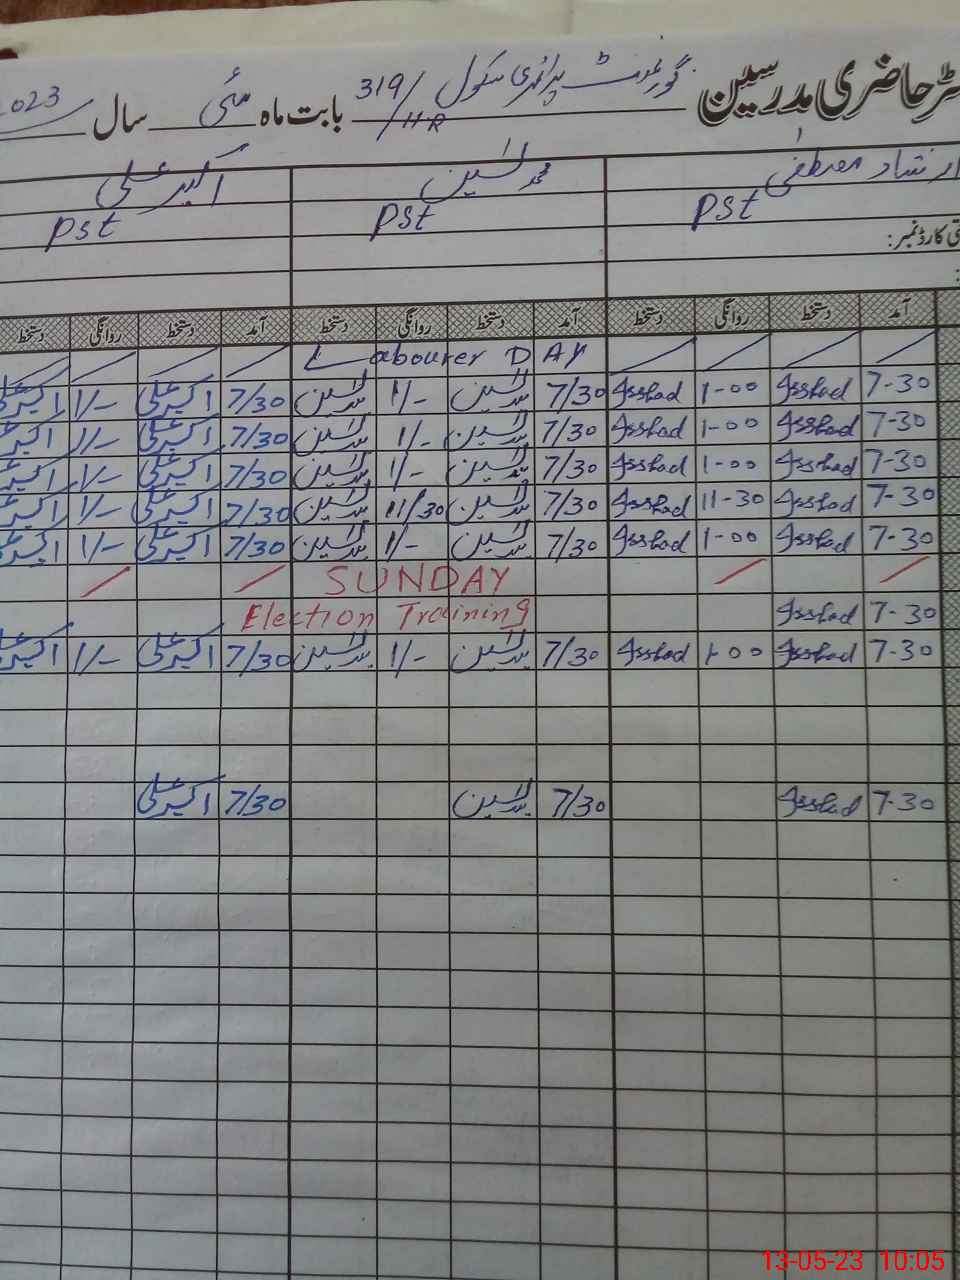 حاضری مدرسین گورنمنٹ پرائمری سکول 319/11R بابت ماہ مئی سال 2023
ارشاد مصطفیٰ محمد یٰسین اکبر علی
Pst Pst Pst
کارڈ نمبر:
آمد دستخط روانگی دستخط آمد دستخط روانگی دستخط آمد دستخط روانگی دستخط
Labourer DAY
7-30 Irshad 1-00 Irshad 7/30 یٰسین 1/- یٰسین 7/30 اکبر علی 1/- اکبر علی
7-30 Irshad 1-00 Irshad 7/30 یٰسین 1/- یٰسین 7/30 اکبر علی 1/- اکبر علی
7-30 Irshad 1-00 Irshad 7/30 یٰسین 1/- یٰسین 7/30 اکبر علی 1/- اکبر علی
7-30 Irshad 11-30 Irshad 7/30 یٰسین 11/30 یٰسین 7/30 اکبر علی 1/- اکبر علی
7-30 Irshad 1-00 Irshad 7/30 یٰسین 1/- یٰسین 7/30 اکبر علی 1/- اکبر علی
SUNDAY
7-30 Irshad Election Training
7-30 Irshad 1-00 Irshad 7/30 یٰسین 1/- یٰسین 7/30 اکبر علی 1/- اکبر علی
7-30 Irshad 7/30 یٰسین 7/30 اکبر علی
13-05-23 10:05